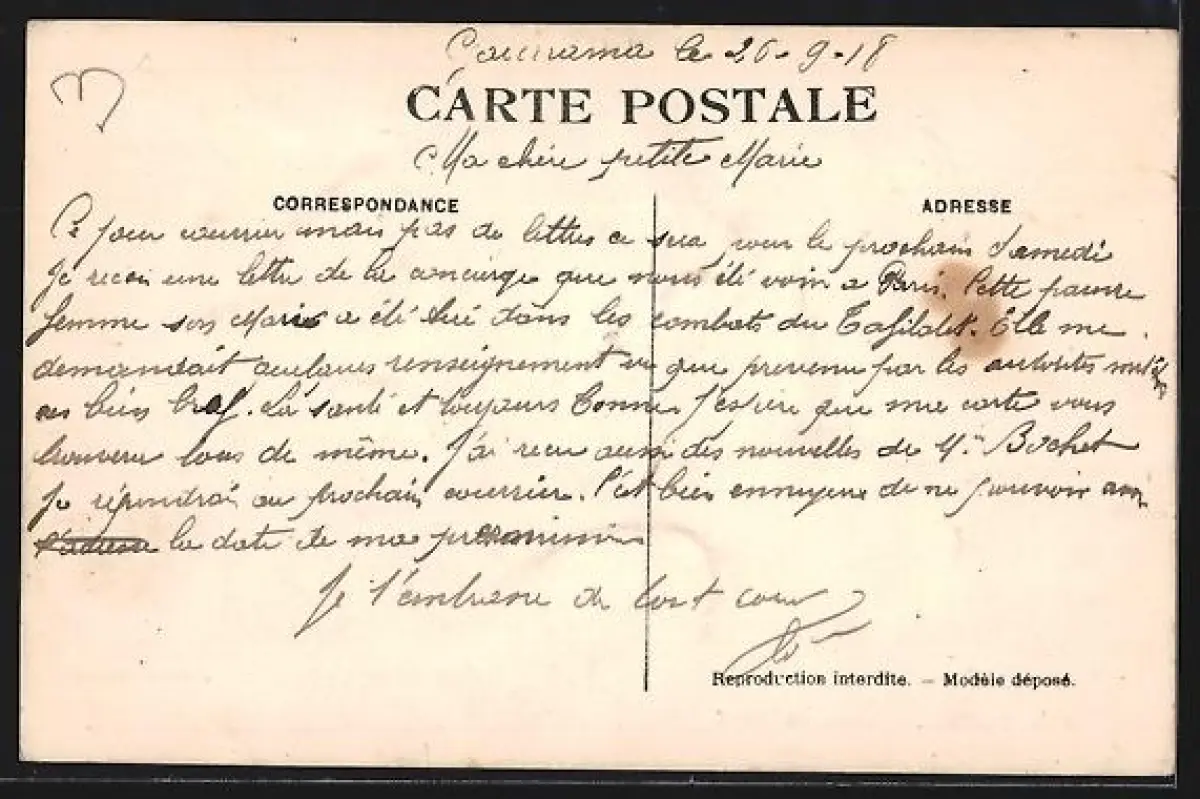 le 26-9-18
CARTE POSTALE
Ma chère petite Marie
CORRESPONDANCE
ADRESSE
Ce jour courrier mais pas de lettres ce sera pour le prochain Samedi
Je recois une lettre de la concierge que nous été voir a Paris. Cette pauvre
femme son Mari a été tué dans les combats du Tafilalet. Elle me
demandait quelques renseignement vu que prevenu par les autorités
bien bref. La santé et toujours bonne. J'espère que ma carte vous
trouvera tous de même. J'ai recu aussi des nouvelles de Mr Bochet
Je répondrai au prochain courrier. C'est bien ennuyeux de ne pouvoir
la date de ma permission
Je t'embrasse de tout cœur
Reproduction interdite. — Modèle déposé.